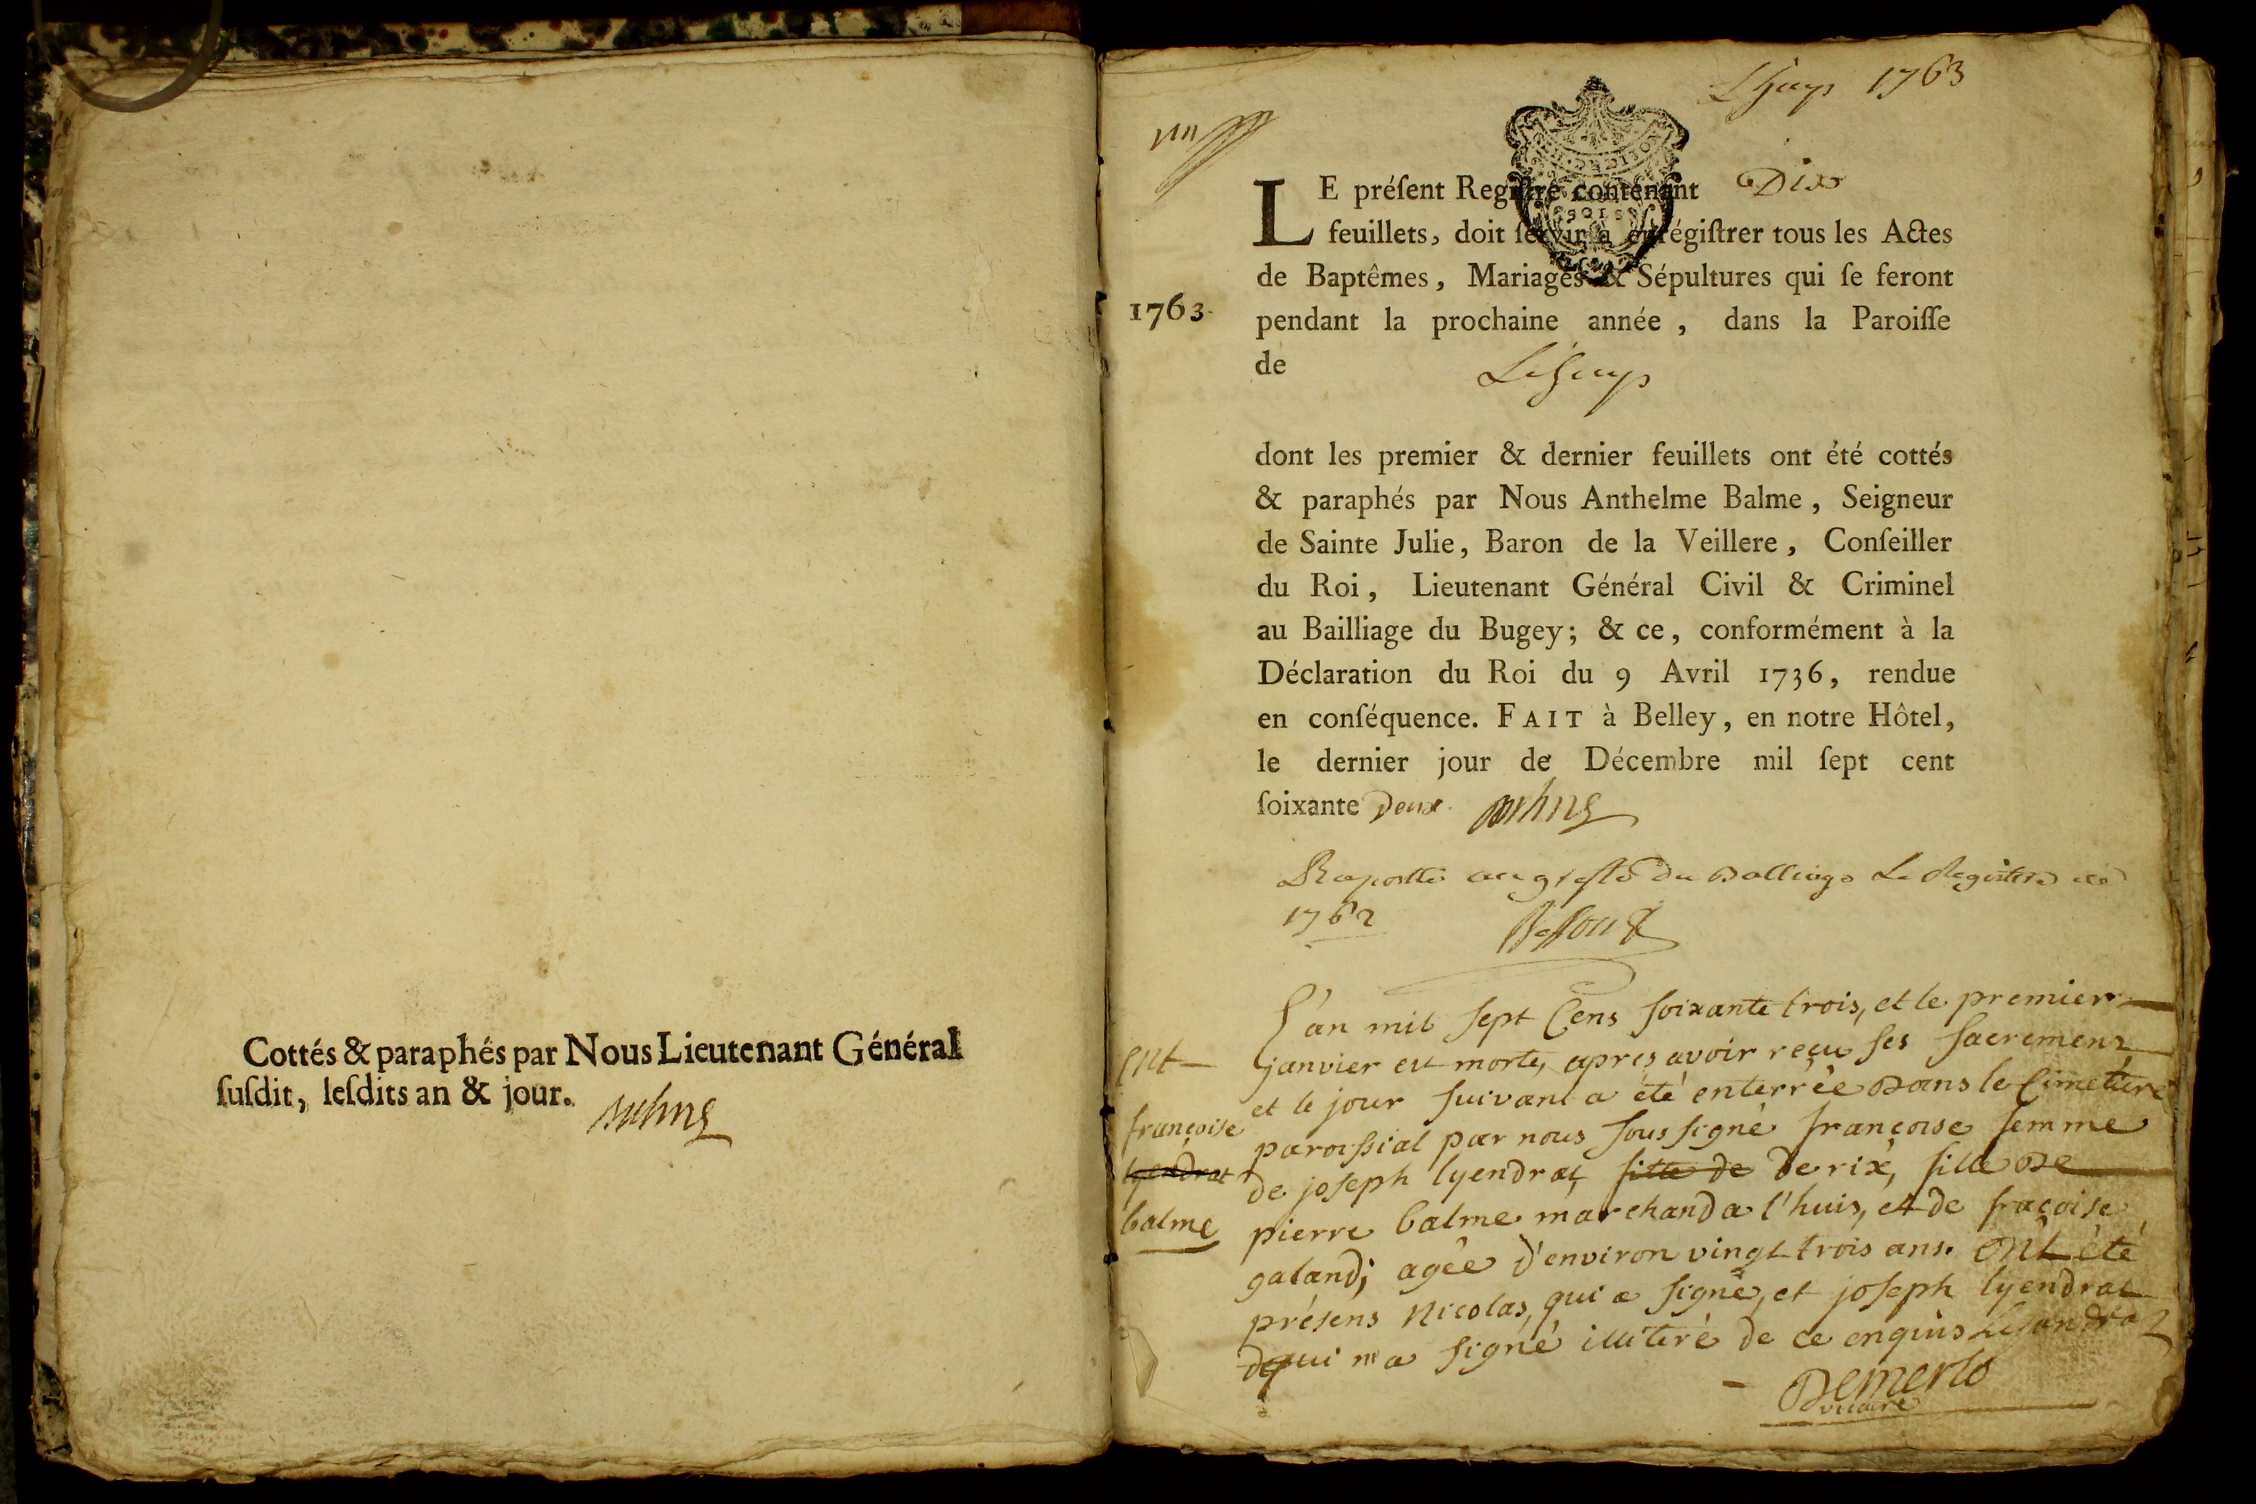 Cottés & paraphés par Nous Lieutenant Général
ſuſdit, leſdits an & jour.
Lhuys 1763
LE préſent Regiſtre contenant Dix
feuillets, doit ſervir à enrégiſtrer tous les Actes
de Baptêmes, Mariages & Sépultures qui ſe feront
1763.
pendant la prochaine année, dans la Paroiſſe
de Lhuys
dont les premier & dernier feuillets ont été cottés
& paraphés par Nous Anthelme Balme, Seigneur
de Sainte Julie, Baron de la Veillere, Conſeiller
du Roi, Lieutenant Général Civil & Criminel
au Bailliage du Bugey; & ce, conformément à la
Déclaration du Roi du 9 Avril 1736, rendue
en conſéquence. FAIT à Belley, en notre Hôtel,
le dernier jour de Décembre mil ſept cent
ſoixante Deux.
Raporttė au greffe du Balliage Le Registre de
1762
L'an mil sept Cens soixante trois, et le premier
janvier est morte, apres avoir reçu ses sacremens
et le jour suivant a été enterrée dans le Cimetiere
paroissial par nous soussigné françoise femme
de joseph lyendrat, fille de de rix, fille de
pierre balme marchand a l'huis, et de fraçoise
galand; agée d'environ vingt trois ans. ont été
présens Nicolas, qui a signé, et joseph lyendrat
qui n'a signé illiteré de ce enquis
Demerlo
vicaire
ent
françoise
lyendrat
balme